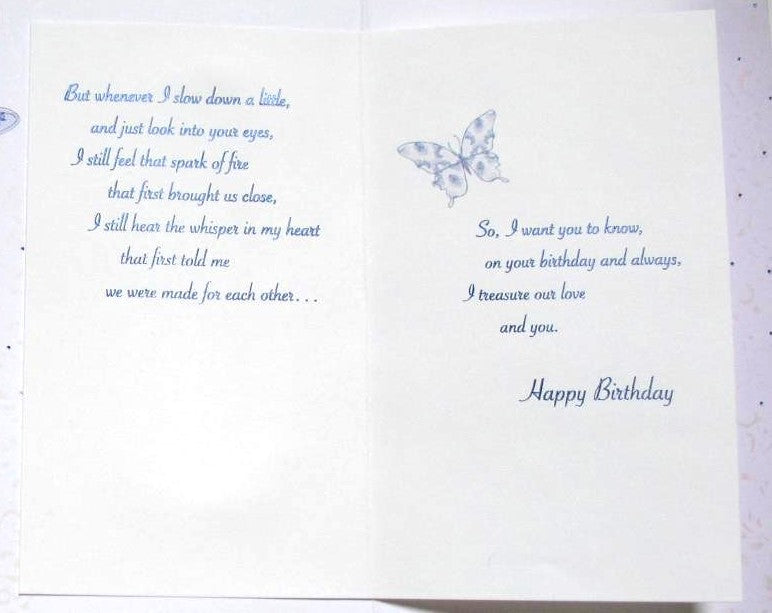 But whenever I slow down a little,
and just look into your eyes,
I still feel that spark of fire
that first brought us close,
I still hear the whisper in my heart
that first told me
we were made for each other...
So, I want you to know,
on your birthday and always,
I treasure our love
and you.
Happy Birthday